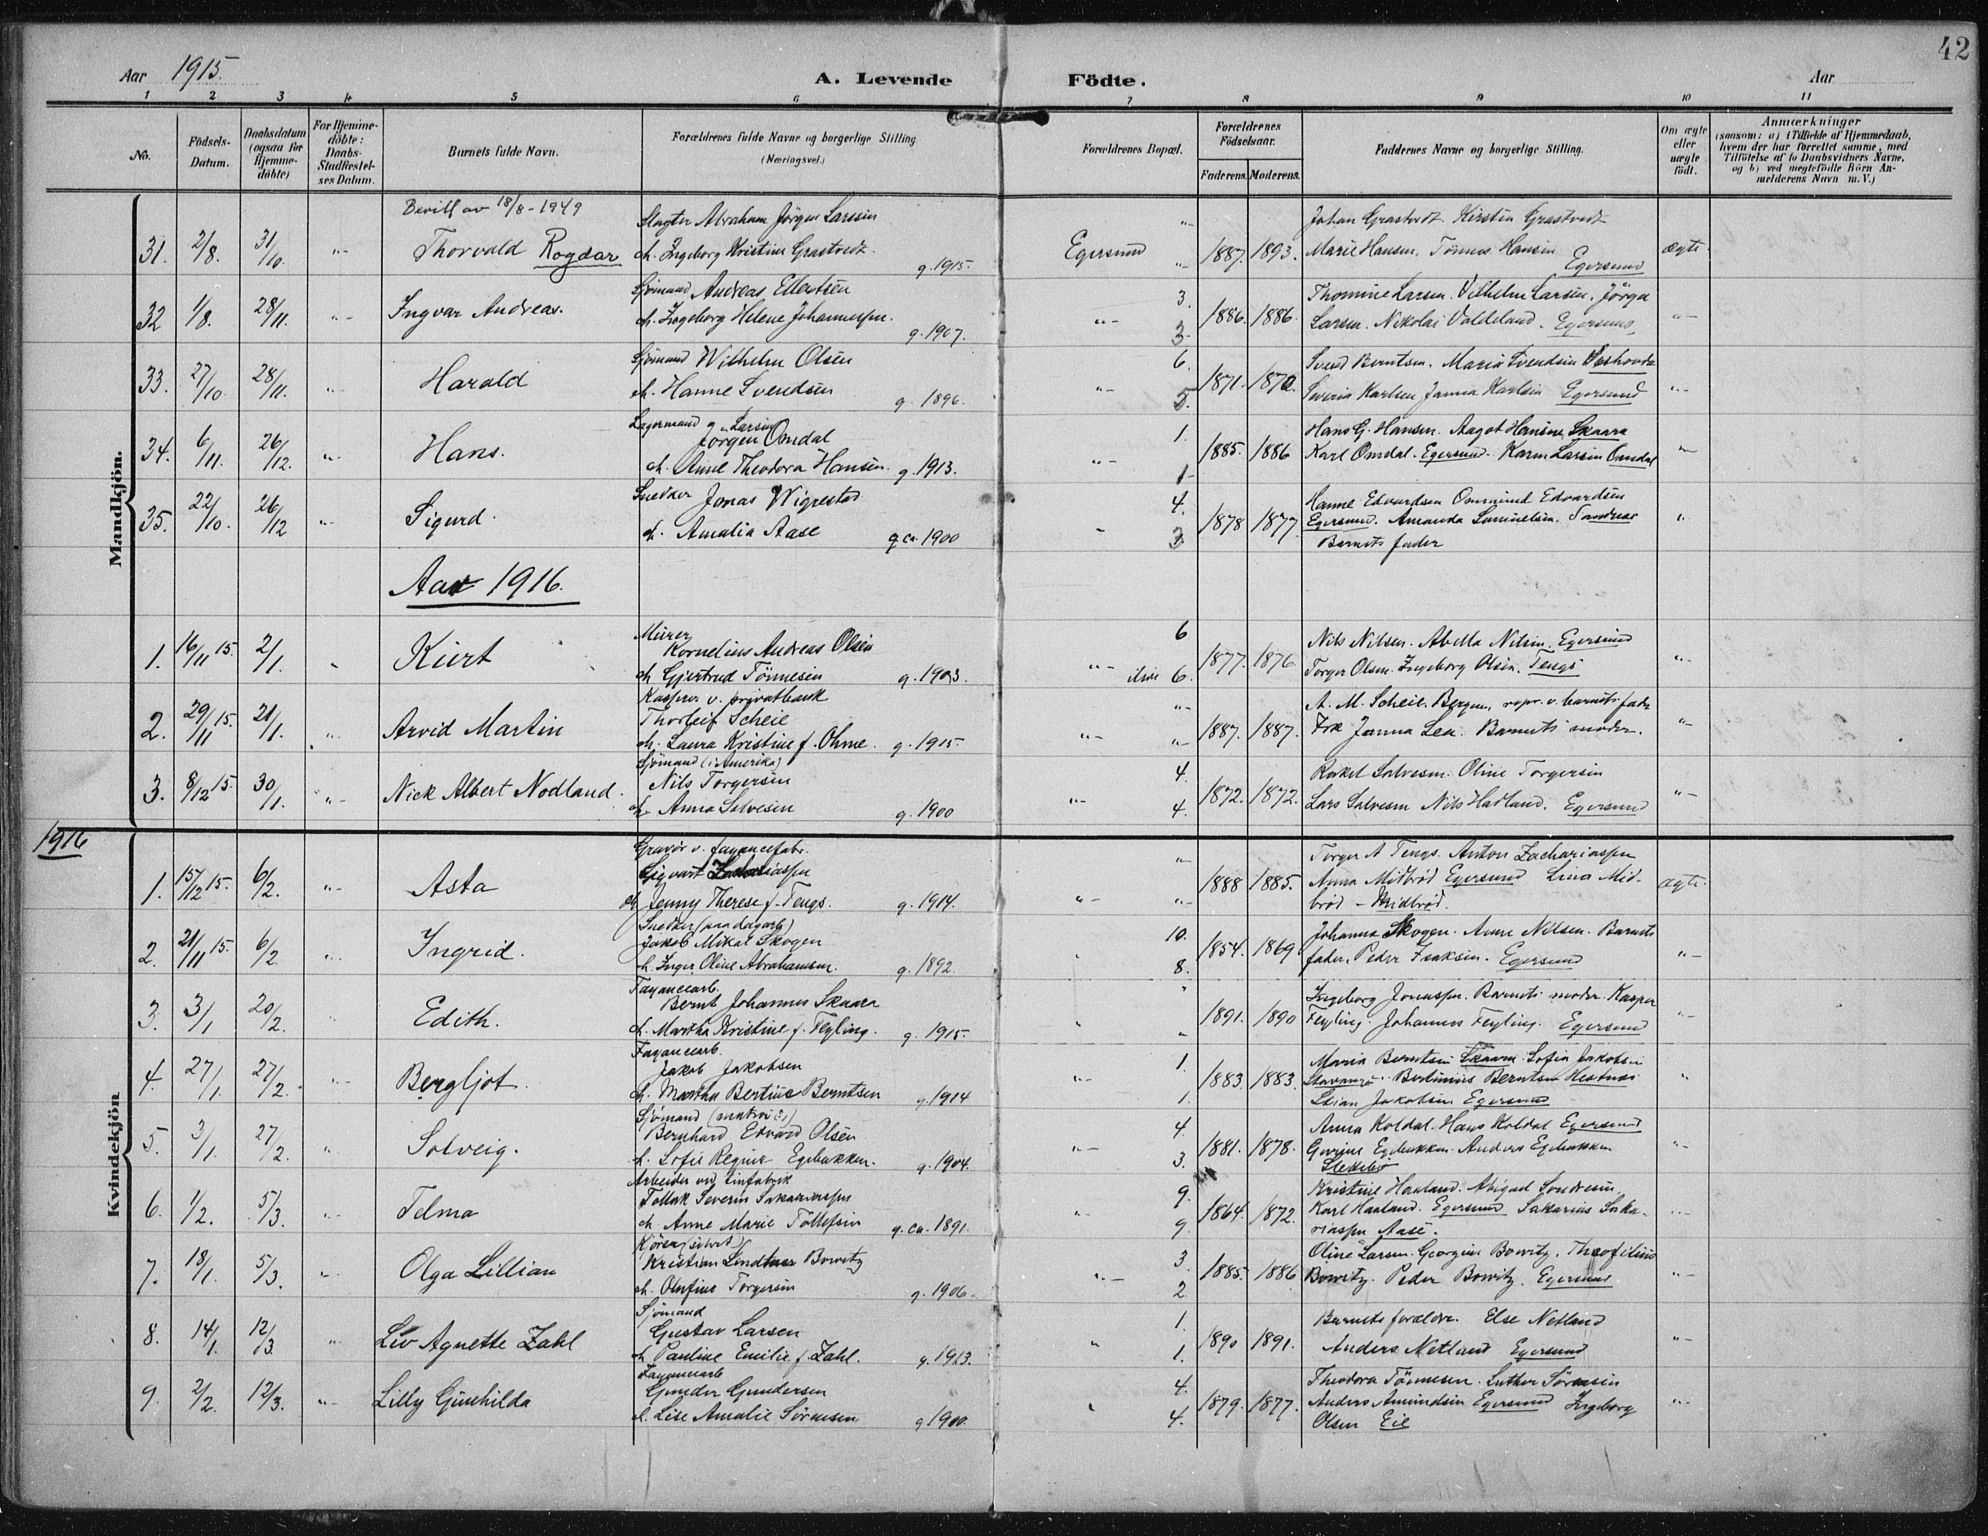 42
Aar 1915.
A. Levende Födte.
Aar
1 2 3 4 5 6 7 8 9 10 11
No.
Födsels-Datum.
Daabsdatum (ogsaa for Hjemme-döbte)
For Hjemme-döbte: Daabs-Stadfæstel-ses Datum.
Barnets fulde Navn.
Forældrenes fulde Navne og borgerlige Stilling (Næringsvei.)
Forældrenes Bopæl.
Forældrenes Födselsaar.
Faderens. Moderens.
Faddernes Navne og borgerlige Stilling.
Om ægte eller uægte födt.
Anmærkninger
(saasom: a) i Tilfælde af Hjemmedaab, hvem der har forrettet samme, med Tilföielse af to Daabsvidners Navne, og b) ved uægtefödte Börn An-melderens Navn m. V.)
Mandkjön.
Bevilf av 18/8-1949
31. 2/8. 31/10. "- Thorvald Rogdar
Slagter Abraham Jörgen Larssen
h. Ingeborg Kristine Grastvedt. g. 1915.
Egersund " " 1887. 1893.
Johan Grastvedt. Kirstin Grastvedt
Marie Hansen, Tönnes Hansen Egersund
ægte
32 1/8. 28/11. "- Ingvar Andreas.
Sjömand Andreas Ellertsen
h. Ingeborg Helene Johannessen. g. 1907.
"- 3. 3. 1886. 1886.
Thomine Larsen. Vilhelm Larsen. Jörgen
Larsen. Nikolai Valdeland. Egersund
"-
33. 27/10. 28/11. "- Harald
Sjömand Wilhelm Olsen
h. Hanne Svendsen g. 1896.
"- 6. 5. 1871- 1872.
Svend Berntsen. Maria Svendsen
Severin Karlsen Janna Karlsen Egersund
"-
34. 6/11. 26/12. "- Hans.
Lagermand Larsen
Jörgen Omdal
h. Anne Theodora Hansen. g. 1913.
"- 1. 1- 1885. 1886
Hans G. Hansen. Aagot Hansen Skaara
Karl Omdal. Egersund. Karen Larsen Omdal
"-
35. 22/10. 26/12 "- Sigurd.
Snedker Jonas Wigrestad
h. Amalia Aase g ca. 1900
" 4. 3. 1878 1877.
Hanne Edvardsen Ommund Edvardsen
Egersund. Amanda Samuelsen.
Barnets fader
"
Aar 1916.
1. 16/11 15. 2/1. " Kurt
Murer
Kornelius Andreas Olsen
h. Gjertrud Tönnesen g. 1903.
"- 6 6. 1877. 1876.
Nils Nilsen. Abella Nilsen. Egersund
Torger Olsen. Ingeborg Olsen. Tengs
"-
2. 29/11 15. 21/1. "- Arvid Martin
Kasserer v. privatbank
Thorleif Scheie
h. Laura Kristine f. Ohme. g. 1915.
"- " " 1887. 1887.
A. M. Scheie. Bergen, repr. v. barnets fader
Frk Janna Lea. Barnets moder.
"-
3. 8/12 15. 30/1. "- Nick Albert Nodland.
Sjömand (i Amerika)
Nils Torgersen
h. Anna Salvesen g. 1900
"- 4. 4. 1872. 1872.
Rakel Salvesen. Oline Torgersen
Lars Salvesen Nils Hadland. Egersund
"-
1916
Kvindekjön
1. 15/12 15. 6/2. "- Asta
Gravör v. fayancefabr.
Sigvart Zachariassen
h. Jenny Therese f. Tengs. g. 1914.
"- " "- 1888 1885.
Torger A Tengs. Anton Zachariassen
Anna Midbröd Egersund Lina Mid-
bröd - Midbröd.
ægte.
2. 21/11 15. 6/2. "- Ingrid.
Snedker (paa dagarb)
Jakob Mikal Skogen
h. Inger Oline Abrahamsen. g. 1892.
" 10. 8. 1854. 1869
Johanna Skogen. Anne Nilsen. Barnets
fader. Peder Isaksen. Egersund
"-
3. 3/1. 20/2. " Edith.
Fayancearb.
Bernt Johannes Skaara
h. Martha Kristine f. Feyling. g. 1915.
" " " 1891. 1890
Ingeborg Jonassen. Barnets moder. Kasper
Feyling. Johannes Feyling. Egersund
"-
4. 27/1. 27/2. "- Bergljot.
Fayancearb.
Jakob Jakobsen
h. Martha Bertine Berntsen g. 1914
"- 1. 1. 1883. 1883.
Maria Berntsen Skaara. Sofia Jakobsen
Stavanger. Berntsen Hestnes
Jakobsen Egersund
"
5. 3/1. 27/2. " Solveig.
Sjömand
Bernhard Edvard Olsen
h. Sofie Regine Egebakken. g. 1904.
"- 4. 3. 1881. 1878.
Anna Koldal. Hans Koldal Egersund
Egebakken. Anders Egebakken
Slettebö
"-
6. 1/2. 5/3. "- Telma
Arbeider ved
Tollak Severin Sakariassen
h. Anne Marie Tollefsen g. ca. 1891.
" 9. 9. 1864. 1872.
Kristine Haaland. Abigael Sondresen.
Karl Haaland. Egersund Sakarias Saka-
riassen Aase.
"-
7. 18/1. 5/3. "- Olga Lillian
Kristian Lindtner Bowitz
h. Olufine Torgersen g. 1906.
"- 3. 2. 1885. 1886
Oline Larsen. Georgine Bowitz. Theofilius
Bowitz. Peder Bowitz. Egersund
"-
8. 14/1. 12/3. "- Liv Agnette Zahl
Sjömand
Gustav Larsen
h. Pauline Emilie f. Zahl. g. 1913.
" 1. 1. 1890 1891.
Barnets foreldre. Else Netland
Anders Netland Egersund
"-
9. 2/2. 12/3. "- Lilly Gunhilda
Fayancearb
Gunder Gundersen
h. Lise Amalie Sörensen g 1900.
" 4. 4. 1879. 1877.
Theodora Tönnesen. Luther Sörensen
Anders Amundsen Egersund Ingeborg
Olsen Eie
"-